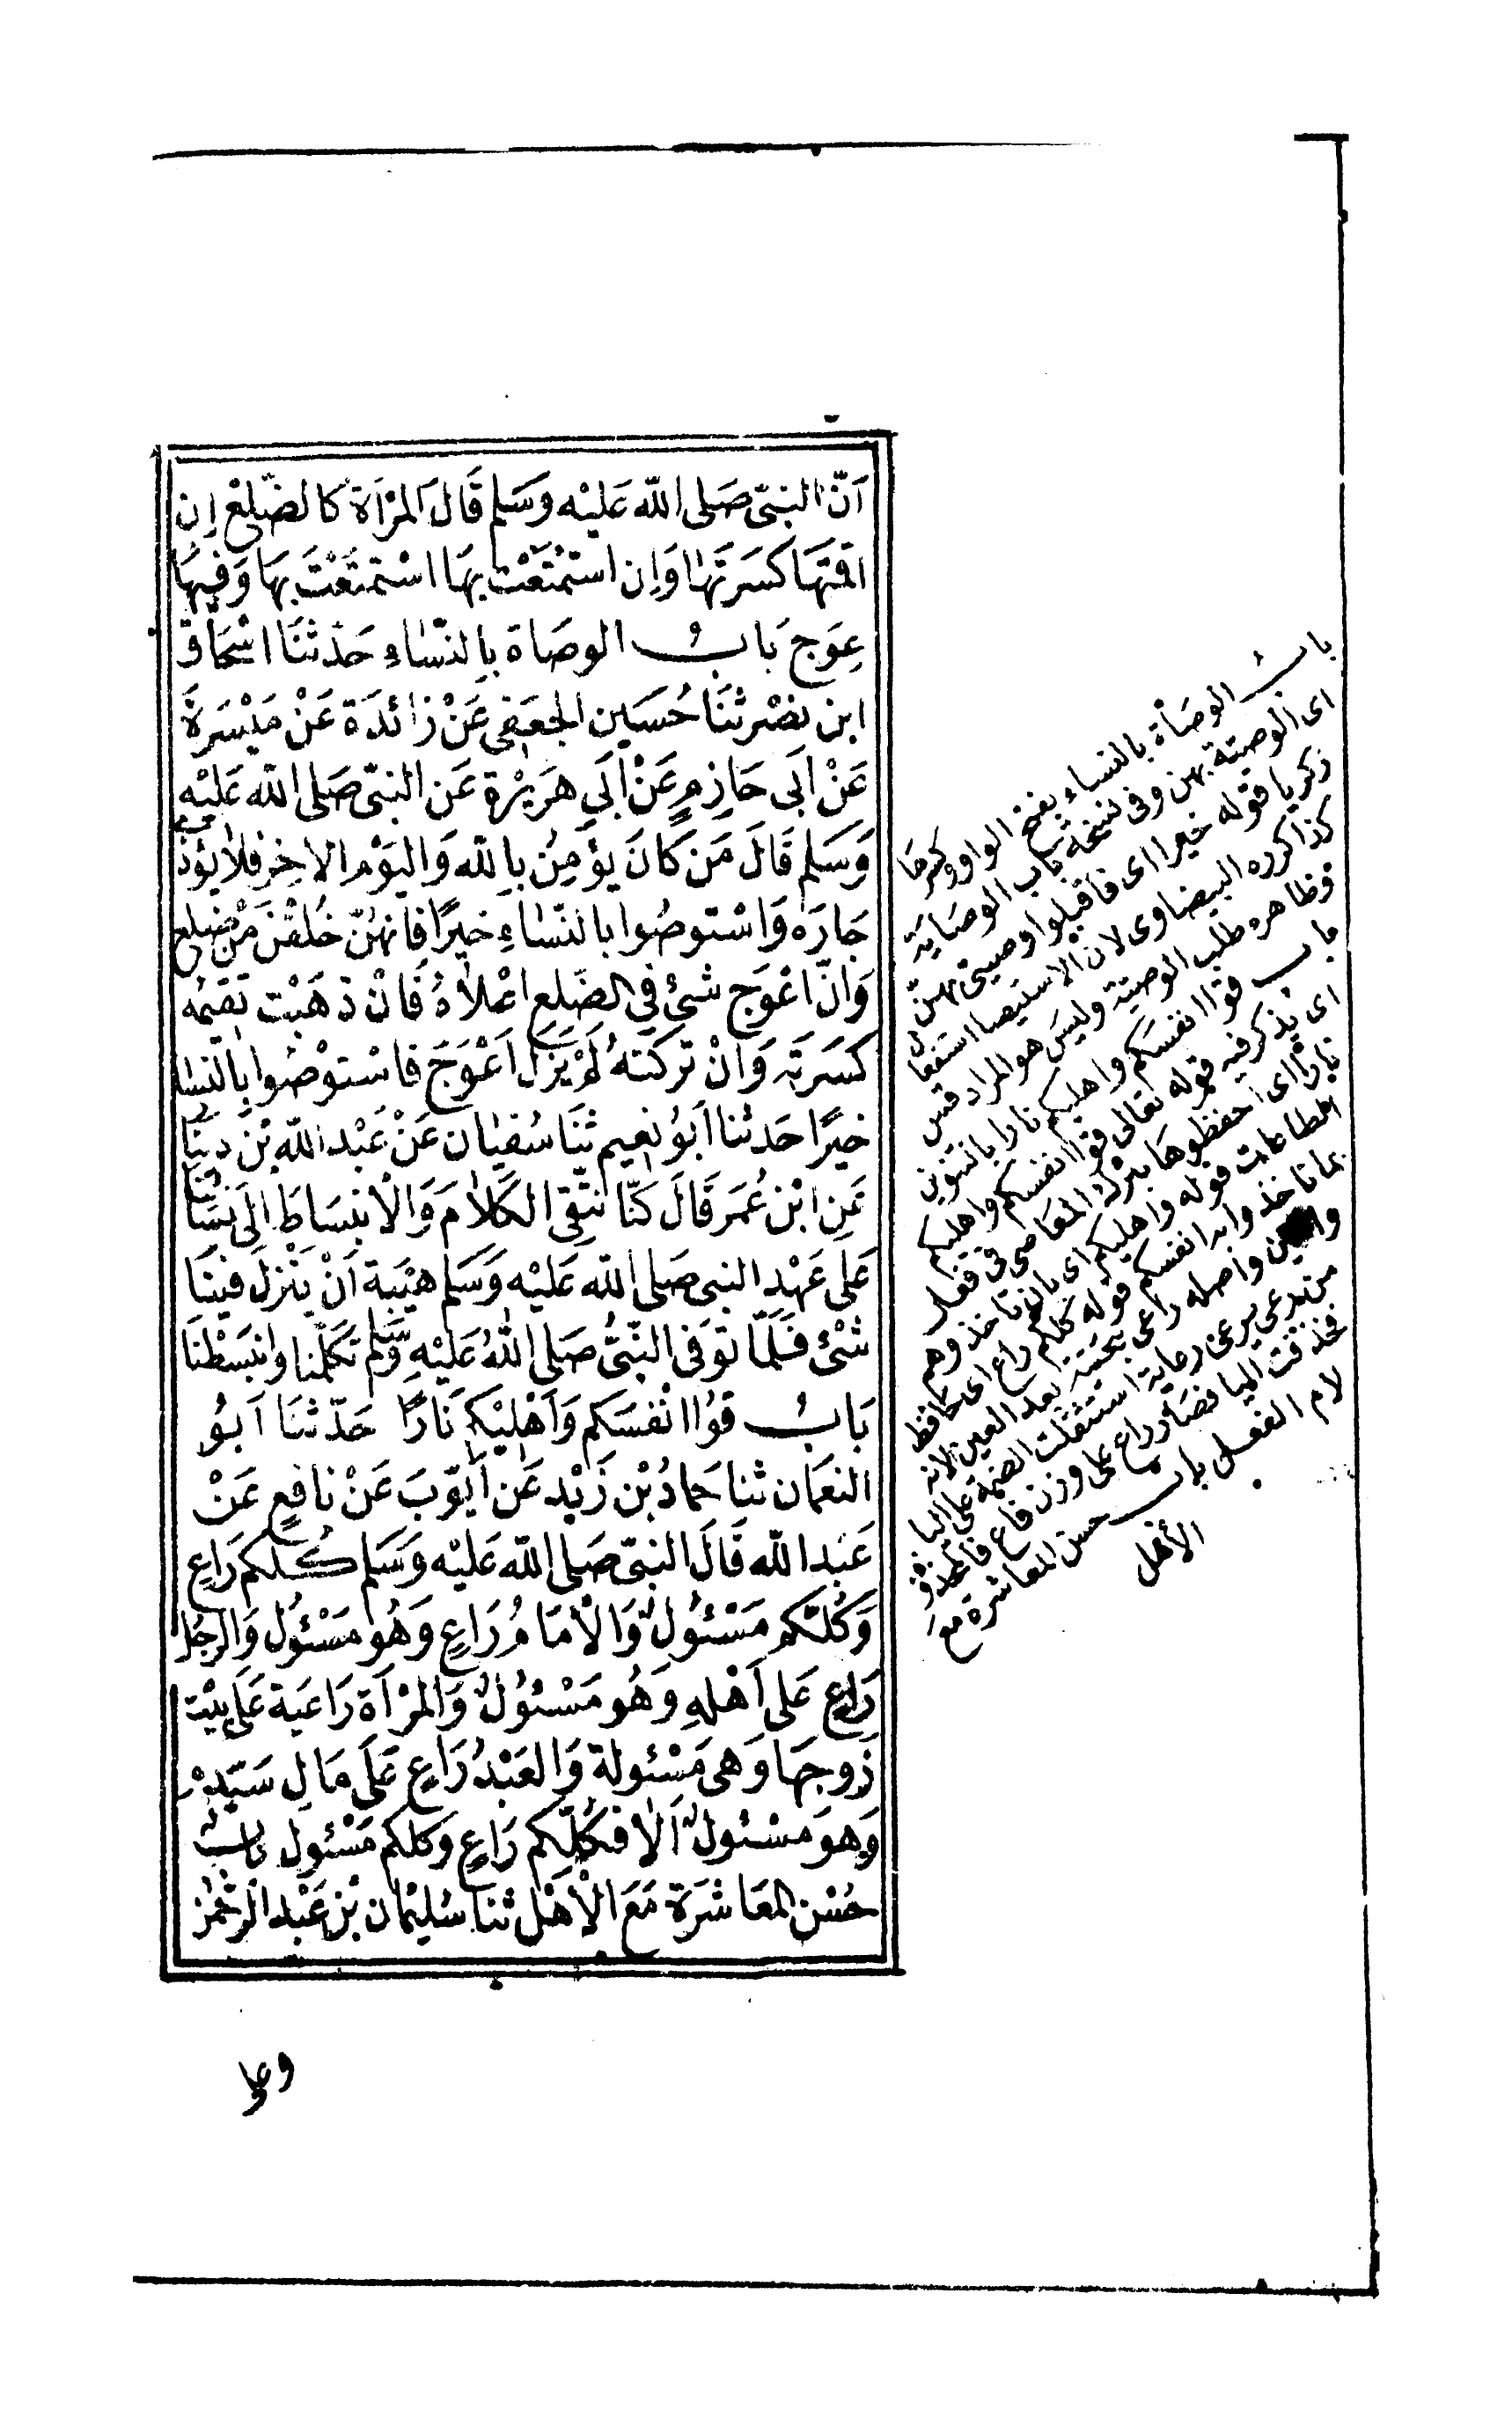 اَنَّ النبىّ صَلى الله عَليْه وَسَلم قَالَ المرْاَة كالضّلعْ اِن
اقمتَهَا كَسَرتَهَا وَاِن استمْتَعْت بهَا استمتَعْتَ بهَا وَفيهَا
عِوَج بَابُ الوصَاة بالنّسَاءِ حَدثنَا اسْحَاق
ابن نصْر ثنَا حُسَين الجعَفى عَنْ زَائدَة عَنْ مَيْسَرَة
عَنْ اَبى حَازِمٍ عَنْ اَبي هرَيْرة عَن النبىّ صَلى الله عَليْه
وَسَلم قَالَ مَن كَانَ يؤمِنُ بالله وَاليَوْم الاخِر فلا يؤذ
جَارَه وَاسْتوصُوا بالنّسَاءِ خيرًا فانهُنّ خلقْنَ مِنْ ضلع
وَانّ اعْوَج شئ في الضّلع اعْلاهُ فَانْ ذهَبْت تقيمُه
كسَرتَه وَانْ تركتهُ لمْ يَزَلْ اَعْوَجَ فاسْتوْصُوا بالنسَا
خيرًا حَدثنا اَبوُ نعيم ثنَا سُفيَان عَنْ عَبْد الله بْن دينَا
عَنِ ابْن عُمَر قَالَ كنّا نتّقى الكَلاَمَ وَالْانبسَاطَ الىَ نسَائنَا
عَلى عَهْدِ النبى صَلى الله عَليْه وَسَلم هيْبَة اَنْ يَنْزلَ فينَا
شئ فَلَمّا توفى النّبىُّ صَلى اللهُ عَليْهِ وَسَلم تكَلّمنا وانبَسَطْنَا
بَابُ قوُا انْفسَكم وَاَهْليْكم نَارًا حَدّثنَا اَبوُ
النعَمان ثنا حَمادُ بْن زَيْد عَن اَيّوبَ عَنْ نافِعٍ عَنْ
عَبْد الله قَالَ النبىّ صَلى الله عَليْه وَسَلم كُلكم رَاعٍ
وَكُلّكم مَسْئوُلٌ وَالْامَامُ رَاعٍ وَهُو مَسْئوُل وَالرجُل
رَاعٍ عَلى اَهْلهِ وَهُو مَسْئوُلٌ وَالمرْاَة رَاعيَة عَلَى بَيْت
زَوجهَا وَهى مَسْئولة وَالعَبْدُ رَاعٍ عَلَى مَالِ سَيّده
وَهوَ مَسْئولٌ اَلا فكُلّكم رَاعٍ وَكلكم مَسْئول بابُ
حُسْن المعَاشَرَة مَعَ الْاَهْل ثنا سُليْمان بْن عَبْد الرحمن
بابُ الوصَاة بالنساء بفتح الواو وكسرها
اى الوصية بهن وفى نسخة باب الوصاية
زكريا قوله خيرا اى فاقبلوا وصيتى بهنّ
كذا كرره البيضاوى لان الاستيصا استفعا
فظاهره طلب الوصية وليس هو المراد قس
باب قوا انفسكم واهليكم نارا بالتنوين
اى يذكر فيه قوله تعالى قوا انفسكم واهليكم
نارا اى احفظوها بترك المعاصى فى فعل
الطاعات قوله واهليكم اى بان تاخذوهم
بما تاخذوا به انفسكم قوله كلكم راع اى حافظ
واصله راعى بتحتية بعد العين لانه
من رعى يرعى رعاية استثقلت الضمة على الياء
فحذفت اليا فصار راع على وزن فاع فالمحذوف
لام الفعل باب حسن المعاشرة مع
الأهل